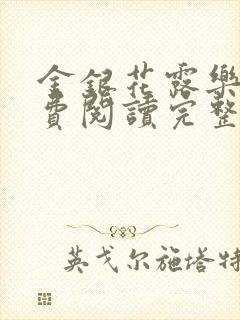 金銀花露樂
費閱讀完整
英戈尔施塔特